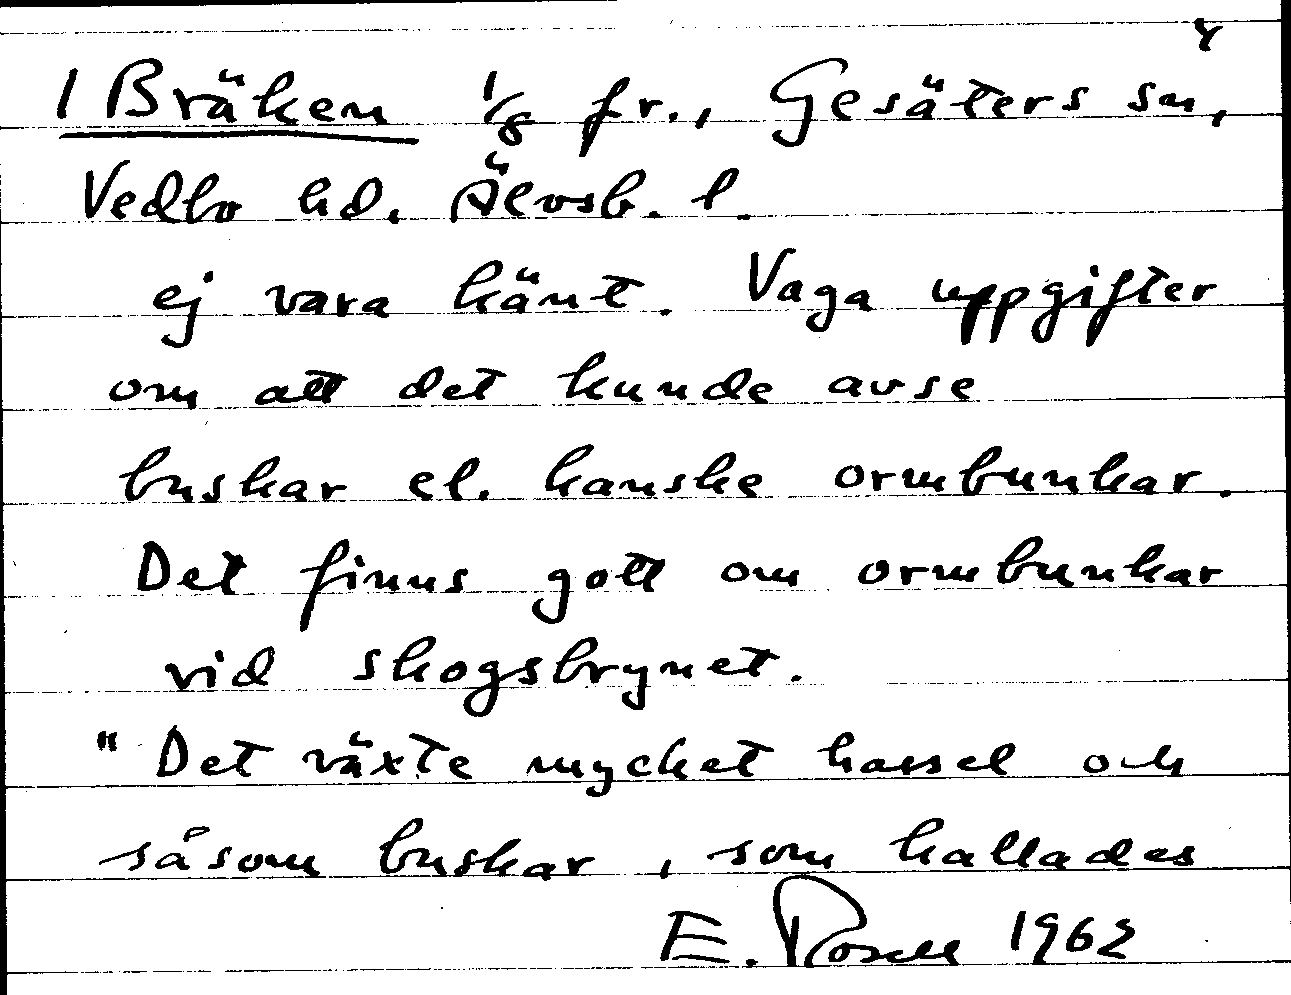 4
1 Bräken 1/8 fr., Gesäters sn,
Vedbo hd. Älvsb. l.
ej vara känt. Vaga uppgifter
om att det kunde avse
buskar el. kanske ormbunkar.
Det finns gott om ormbunkar
vid skogsbrynet.
"Det växte mycket hassel och
såsom buskar, som kallades
E. Rosell 1962